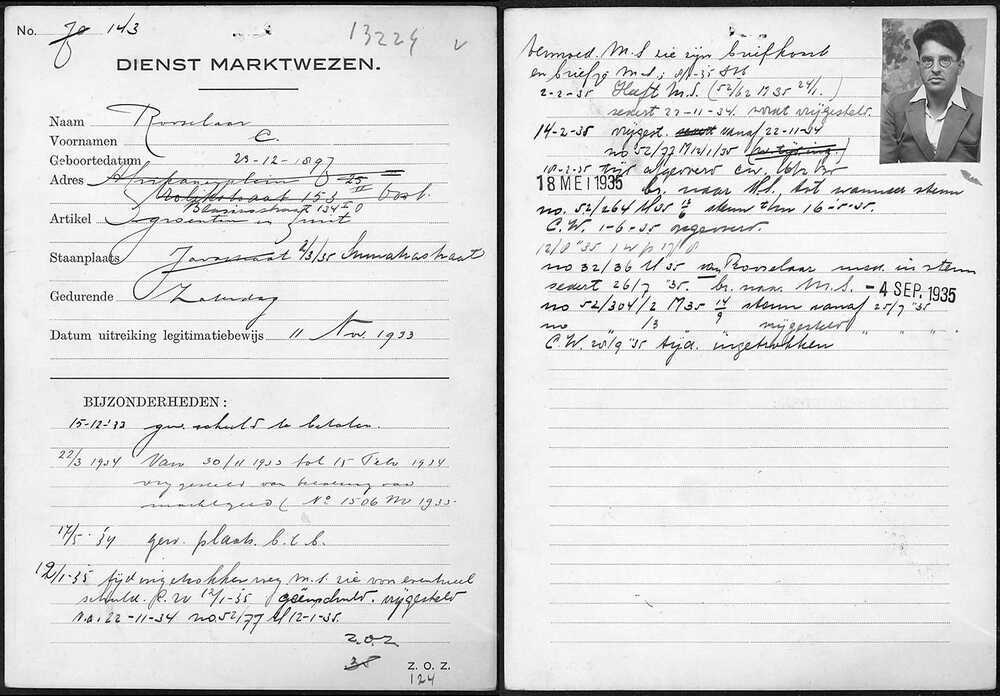 No. 70 14/3
13224 v
DIENST MARKTWEZEN.
Naam Rosselaar
Voornamen C.
Geboortedatum 23-12-1897
Adres Afrikanerplein 25 III
153 II Oost.
Blasiusstraat 134 II O
Artikel groenten en fruit
Staanplaats Javastraat 2/3/35 Sumatrastraat
Gedurende Zaterdag
Datum uitreiking legitimatiebewijs 11 Nov. 1933
BIJZONDERHEDEN:
15-12-33 gew. schuld te betalen.
22/3 1934 Van 30/11 1933 tot 15 Febr 1934
vrijgesteld van betaling van
marktgeld (No 1506 M 1933
17/5 '34 gew. plaats b.t.b.
12/1-35 tijd ingetrokken weg M.S. zie von eventueel
schuld. C.W 12/1-35 geenschuld. vrijgesteld
v.a. 22-11-34 no 52/77 M 12-1-35.
Z.O.Z
35
Z. O. Z.
124
M.S zie zijn briefkaart
en briefje M.S;
2-2-35 Heeft M.S. (52/62 M 35 24/1.)
sedert 22-11-34. wordt vrijgesteld.
14-2-35 vrijgest. vanaf 22-11-34
no 52/77 M 12/1/35
18-2-35 tijd afgevoerd C.W.
18 MEI 1935 br. naar M.S., tot wanneer steun
no. 52/264 M 35 13/6 steun t/m 16-5-35.
C.W. 1-6-35 opgevoerd.
12/8 "35 1 w p 17/8
no 32/36 M 35 van Rosselaar med. in steun
sedert 26/7 "35. br. naar M.S. - 4 SEP. 1935
no 52/304/2 M 35 14/9 steun vanaf 25/7 "35
no " 13 " vrijgesteld " " " .
C.W. 20/9 "35 tijd. ingetrokken